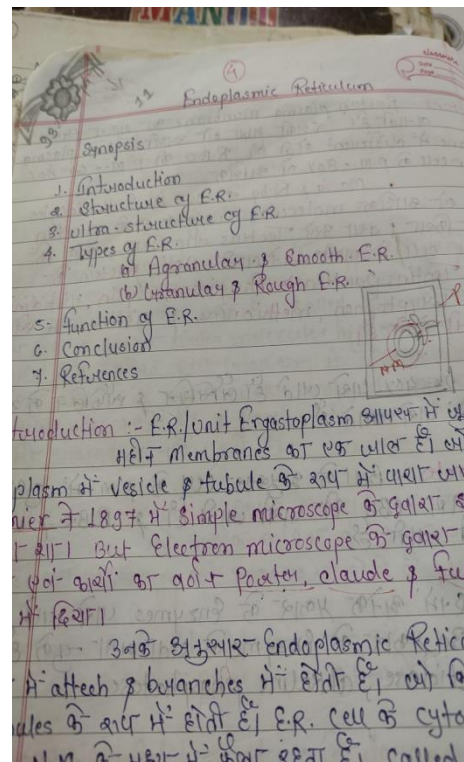 MANGL
4
classmate
Date
Page
11
Endoplasmic Reticulum
Synopsis
1. Introduction
2. Structure of E.R.
3. Ultra-structure of E.R.
4. Types of E.R.
(a) Agranular & Smooth E.R.
(b) Granular & Rough E.R.
5. Function of E.R.
6. Conclusion
7. References
troduction :- E.R./Unit Ergastoplasm आपस में
महीन membranes का एक जाल है। जो
plasm में vesicle & tubule के रूप में पाया जा
ने 1897 में simple microscope के द्वारा
था। But Electron microscope के द्वारा
एवं कार्यों का वर्णन Porter, claude & Fu
में दिया।
उनके अनुसार Endoplasmic Retic
में attech & branches में होती हैं, जो कि
ules के रूप में होती हैं। E.R. cell के cyto
में फैला रहता है, called